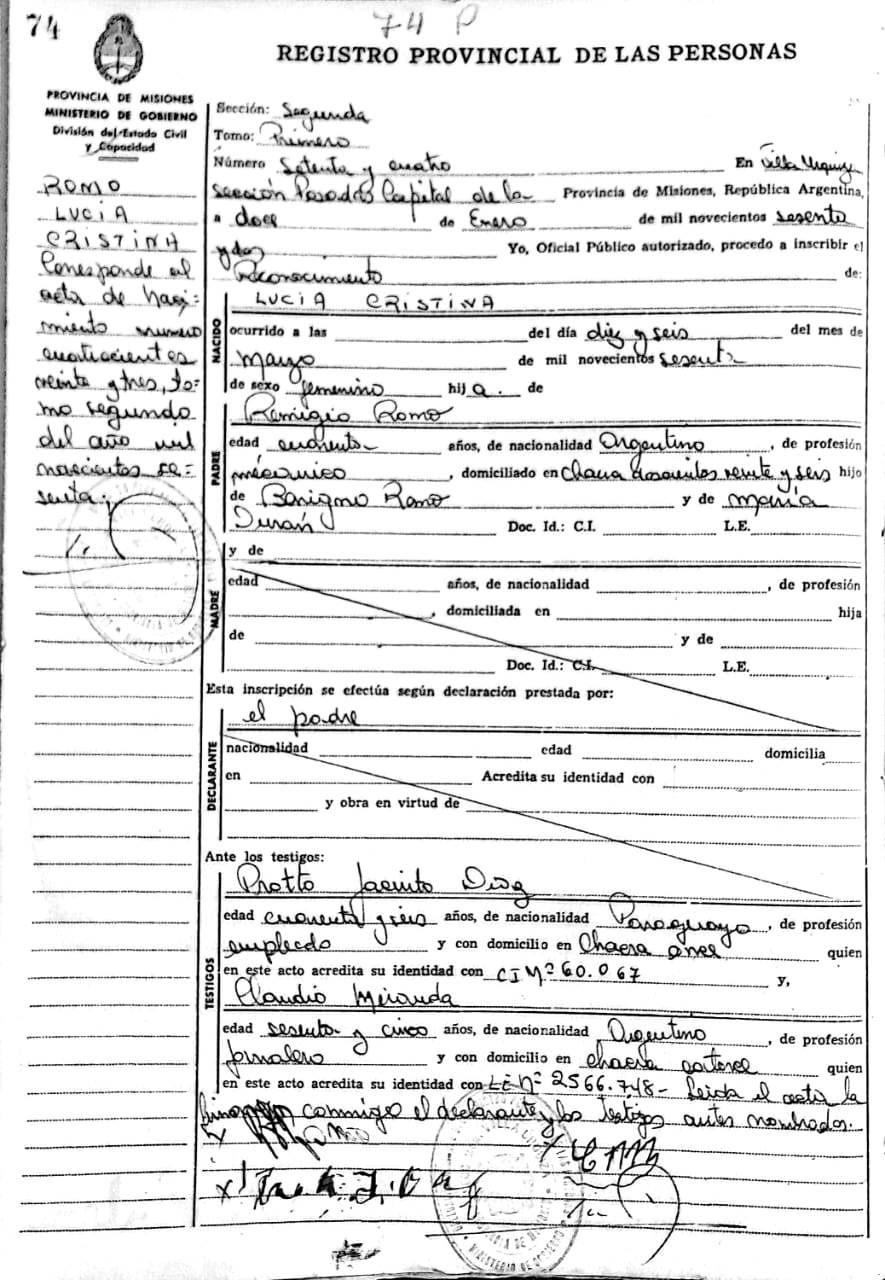 74
74 P
REGISTRO PROVINCIAL DE LAS PERSONAS
PROVINCIA DE MISIONES
MINISTERIO DE GOBIERNO
División del Estado Civil
y Capacidad
ROMO
LUCIA
CRISTINA
Corresponde al
acta de Naci-
miento numero
cuatrocientos
veinte y tres, to-
mo segundo
del año mil
novecientos se-
senta.
Sección: Segunda
Tomo: Primero
Número Setenta y cuatro En Villa Urquiza
Sección Posadas Capital de la Provincia de Misiones, República Argentina,
a doce de Enero de mil novecientos sesenta
y dos Yo, Oficial Público autorizado, procedo a inscribir el
Reconocimiento de:
NACIDO
LUCIA CRISTINA
ocurrido a las del día diez y seis del mes de
Marzo de mil novecientos sesenta
de sexo femenino hija. de
PADRE
Remigio Romo
edad cuarenta años, de nacionalidad Argentino, de profesión
mécanico, domiciliado en chacra doscientos veinte y seis hijo
de Benigno Romo y de María
Durán Doc. Id.: C.I. L.E.
MADRE
y de
edad años, de nacionalidad , de profesión
, domiciliada en hija
de y de
Doc. Id.: C.I. L.E.
Esta inscripción se efectúa según declaración prestada por:
DECLARANTE
el padre
nacionalidad edad domicilia
en Acredita su identidad con
y obra en virtud de
Ante los testigos:
TESTIGOS
Protto Jacinto Diaz
edad cuarenta y seis años, de nacionalidad Paraguayo, de profesión
empleado y con domicilio en Chacra once quien
en este acto acredita su identidad con CI Nº 60.067 y,
Claudio Miranda
edad sesenta y cinco años, de nacionalidad Argentino, de profesión
jornalero y con domicilio en chacra catorce quien
en este acto acredita su identidad con LE nº 2566.748- Leida el acta la
firman conmigo el declarante y los testigos antes nombrados.